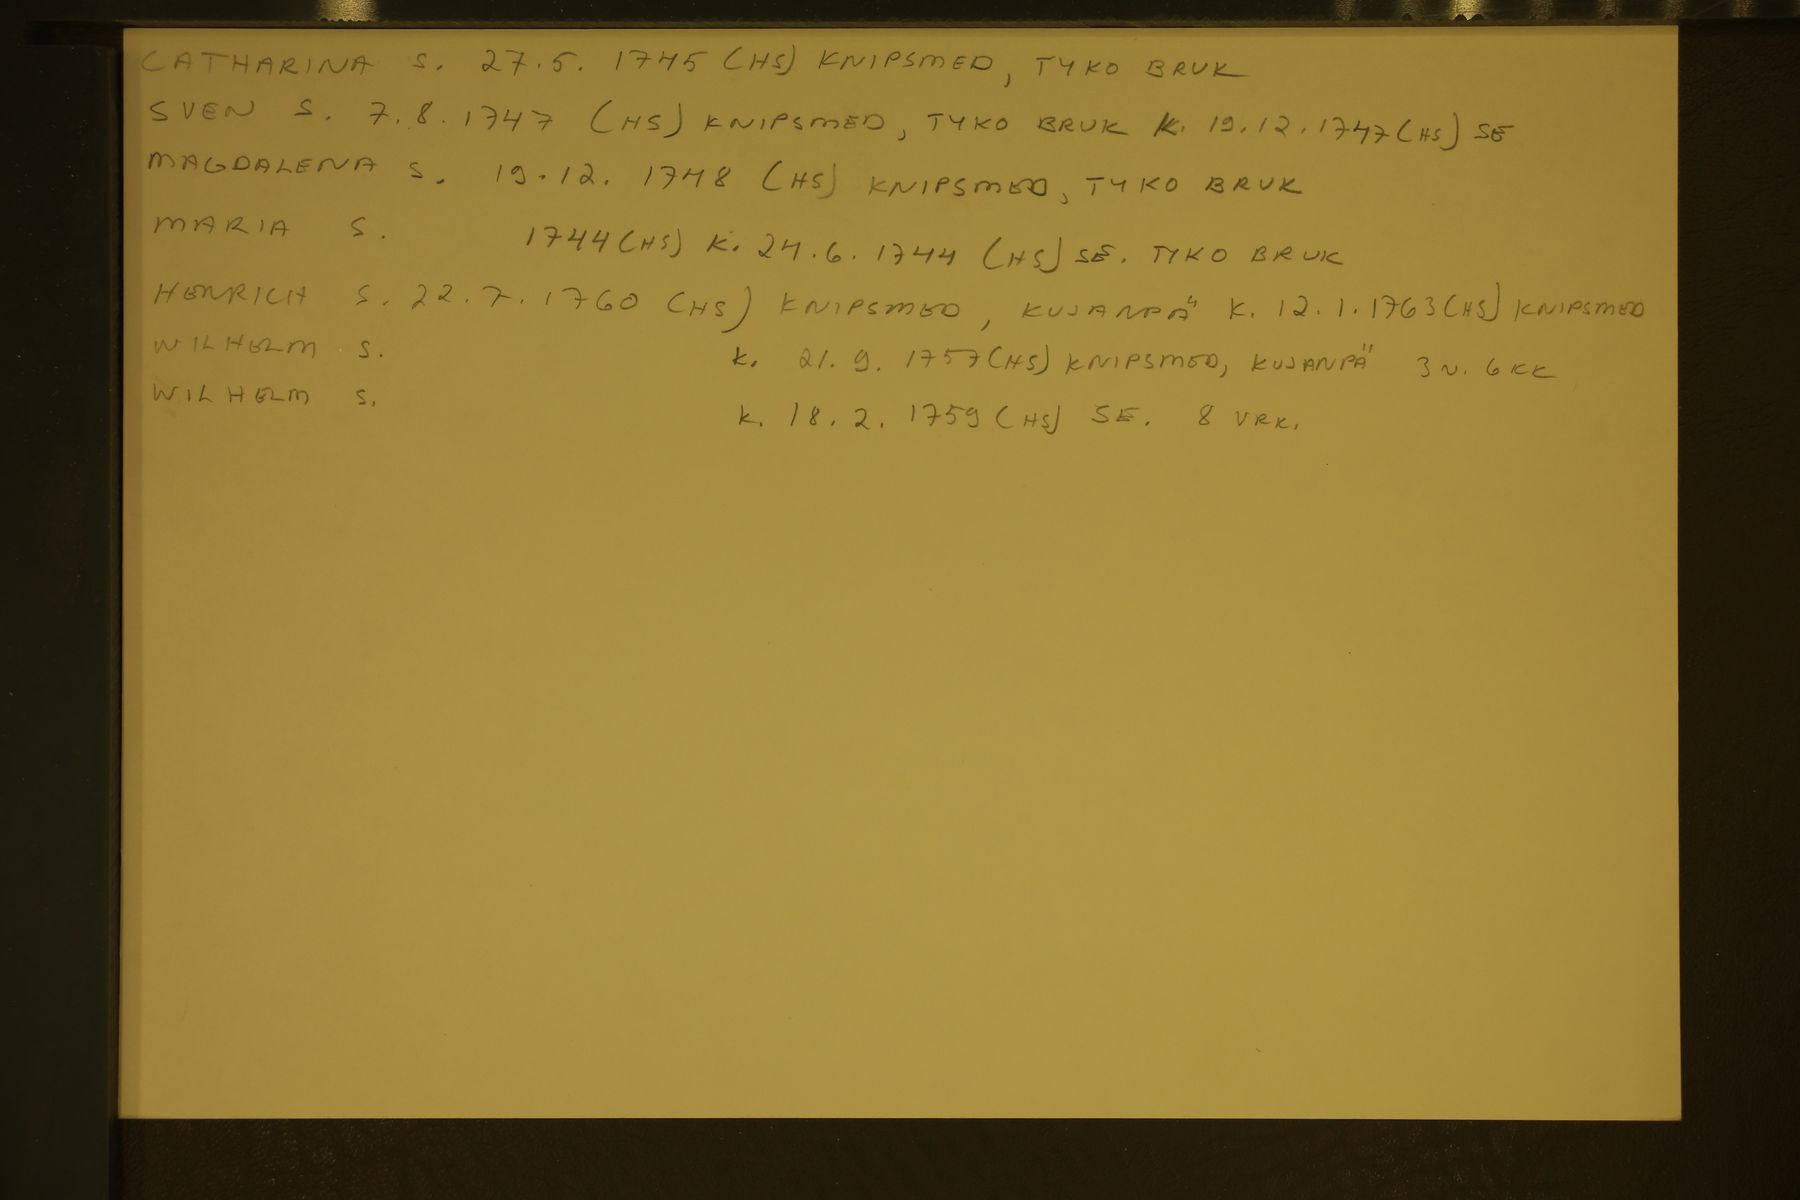 CATHARINA S. 27.5. 1745 (HS) KNIPSMED, TYKO BRUK
SVEN S. 7.8.1747 (HS) KNIPSMED, TYKO BRUK K. 19.12.1747 (HS) SE
MAGDALENA S. 19.12. 1748 (HS) KNIPSMED, TYKO BRUK
MARIA S. 1744 (HS) K. 24.6.1744 (HS) SE. TYKO BRUK
HENRICH S. 22.7.1760 (HS) KNIPSMED, KUJANPÄ K. 12.1.1763 (HS) KNIPSMED
WILHELM S. K. 21.9.1757 (HS) KNIPSMED, KUJANPÄ 3 V. 6 KK
WILHELM S. K. 18.2.1759 (HS) SE. 8 VRK.